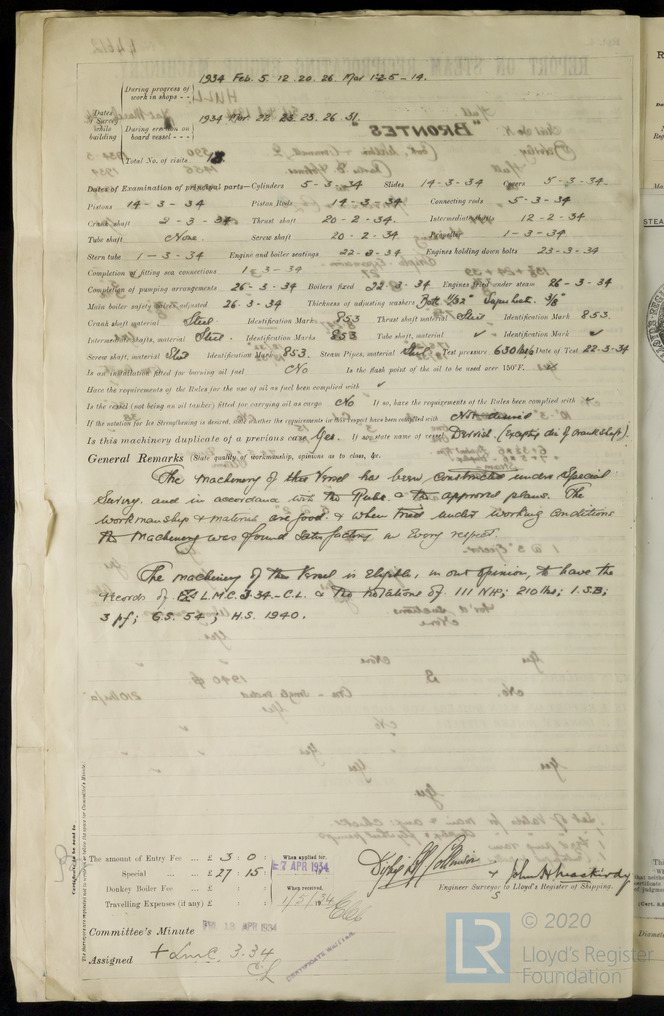 1934 Feb. 5. 12. 20. 26. Mar 1-2-5-14.
During progress of work in shops - -
Dates of Survey while building
During erection on board vessel - - -
1934 Mar. 22. 23. 26. 31.
Total No. of visits
Dates of Examination of principal parts—Cylinders 5-3-34 Slides 14-3-34 Covers 5-3-34
Pistons 14-3-34 Piston Rods 14-3-34 Connecting rods 5-3-34
Crank shaft 2-3-34 Thrust shaft 20-2-34 Intermediate shafts 12-2-34
Tube shaft None Screw shaft 20-2-34 Propeller 1-3-34
Stern tube 1-3-34 Engine and boiler seatings 22-3-34 Engines holding down bolts 23-3-34
Completion of fitting sea connections 1-3-34
Completion of pumping arrangements 26-3-34 Boilers fixed 22-3-34 Engines tried under steam 26-3-34
Main boiler safety valves adjusted 26-3-34 Thickness of adjusting washers
Crank shaft material Steel Identification Mark 853 Thrust shaft material Steel Identification Mark 853
Intermediate shafts, material Steel Identification Marks 853 Tube shaft, material ✓ Identification Mark ✓
Screw shaft, material Steel Identification Mark 853 Steam Pipes, material Steel Test pressure 630 lbs Date of Test 22-3-34
Is an installation fitted for burning oil fuel No Is the flash point of the oil to be used over 150°F.
Have the requirements of the Rules for the use of oil as fuel been complied with ✓
Is the vessel (not being an oil tanker) fitted for carrying oil as cargo No If so, have the requirements of the Rules been complied with ✓
If the notation for Ice Strengthening is desired, state whether the requirements in this respect have been complied with Not desired
Is this machinery duplicate of a previous case Yes. If so, state name of vessel (Except dia of crankshaft)
General Remarks (State quality of workmanship, opinions as to class, &c.
The machinery of this Vessel has been constructed under Special
Survey and in accordance with the Rules & the approved plans. The
workmanship & materials are good & when tried under working conditions
the machinery was found satisfactory in every respect.
The machinery of this Vessel is Eligible, in our opinion, to have the
records of L.M.C. 3.34.-C.L. & the notations of 111 NHP; 210 lbs; 1.S.B;
3 pf; G.S. 54; H.S. 1940.
Certificate to be sent to
The Surveyors are requested not to write on or below the space for Committee's Minute.
The amount of Entry Fee ... £ 3 : 0 : When applied for,
Special ... £ 27 : 15 : 7 APR 1934
Donkey Boiler Fee ... £ : : When received,
Travelling Expenses (if any) £ : : 1/5/34
Engineer Surveyor to Lloyd's Register of Shipping.
Committee's Minute
APR 1934
Assigned + LMC 3.34
CL
CERTIFICATE WRITTEN
LR © 2020
Lloyd's Register
Foundation